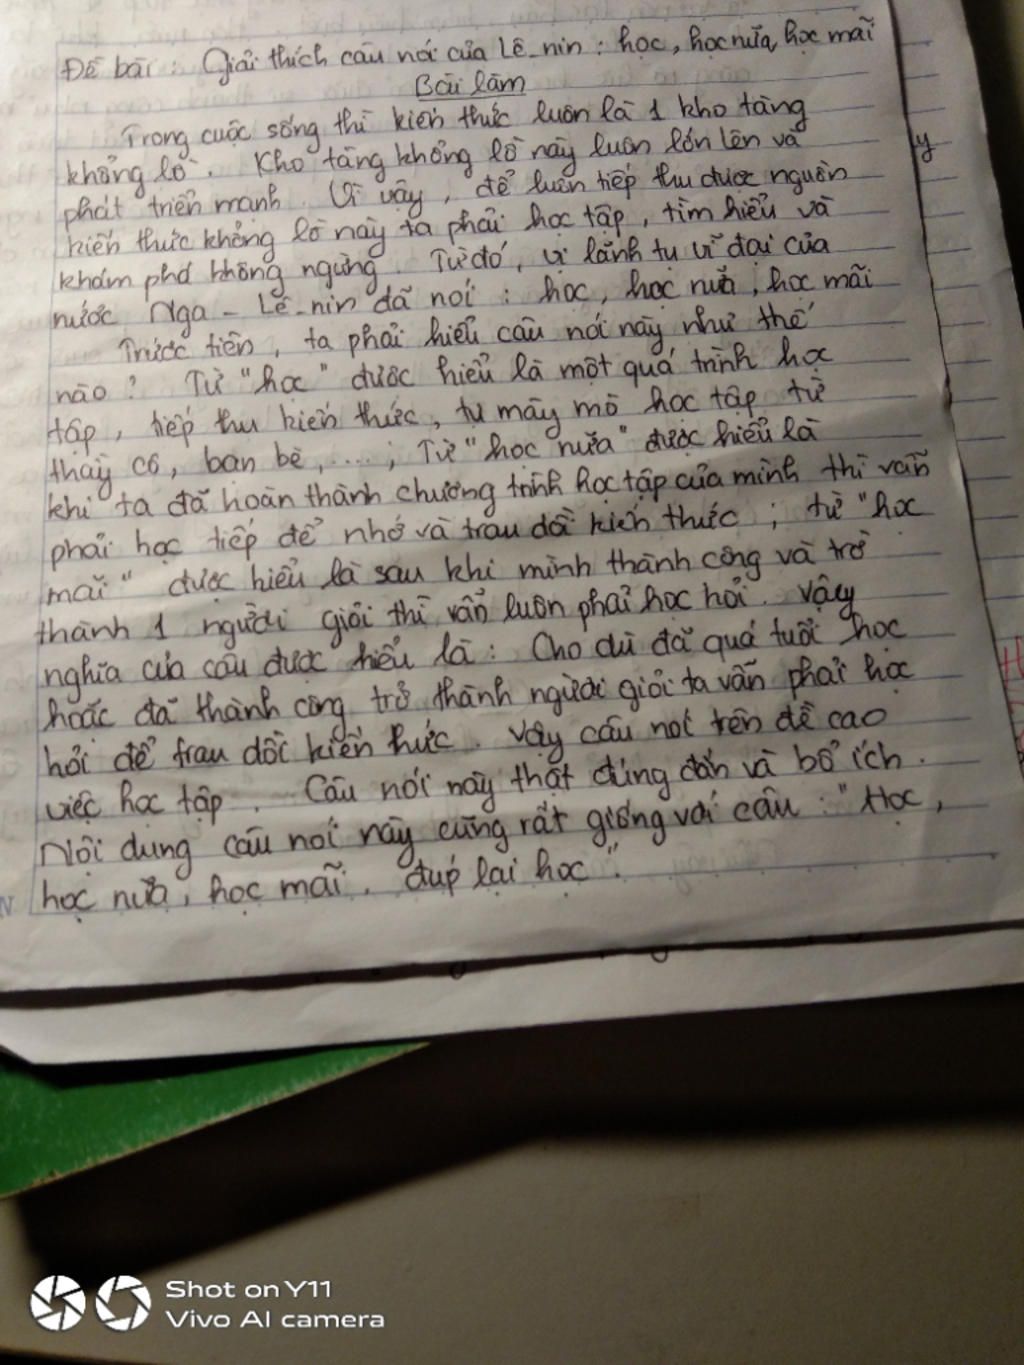 Đề bài : Giải thích câu nói của Lê-nin : học, học nữa, học mãi
Bài làm
Trong cuộc sống thì kiến thức luôn là 1 kho tàng
khổng lồ. Kho tàng khổng lồ này luôn lớn lên và
phát triển mạnh. Vì vậy, để luôn tiếp thu được nguồn
kiến thức khổng lồ này ta phải học tập, tìm hiểu và
khám phá không ngừng. Từ đó, vị lãnh tụ vĩ đại của
nước Nga - Lê-nin đã nói : học, học nữa, học mãi
Trước tiên, ta phải hiểu câu nói này như thế
nào? Từ "học" được hiểu là một quá trình học
tập, tiếp thu kiến thức, tự mày mò học tập từ
thầy cô, bạn bè, ....; Từ "học nữa" được hiểu là
khi ta đã hoàn thành chương trình học tập của mình thì vẫn
phải học tiếp để nhớ và trau dồi kiến thức ; từ "học
mãi" được hiểu là sau khi mình thành công và trở
thành 1 người giỏi thì vẫn luôn phải học hỏi. Vậy
nghĩa của câu được hiểu là : Cho dù đã quá tuổi học
hoặc đã thành công trở thành người giỏi ta vẫn phải học
hỏi để trau dồi kiến thức. Vậy câu nói trên đề cao
việc học tập. Câu nói này thật đúng đắn và bổ ích.
Nội dung câu nói này cũng rất giống với câu : "Học,
học nữa, học mãi. đúp lại học".
y
Shot on Y11
Vivo AI camera